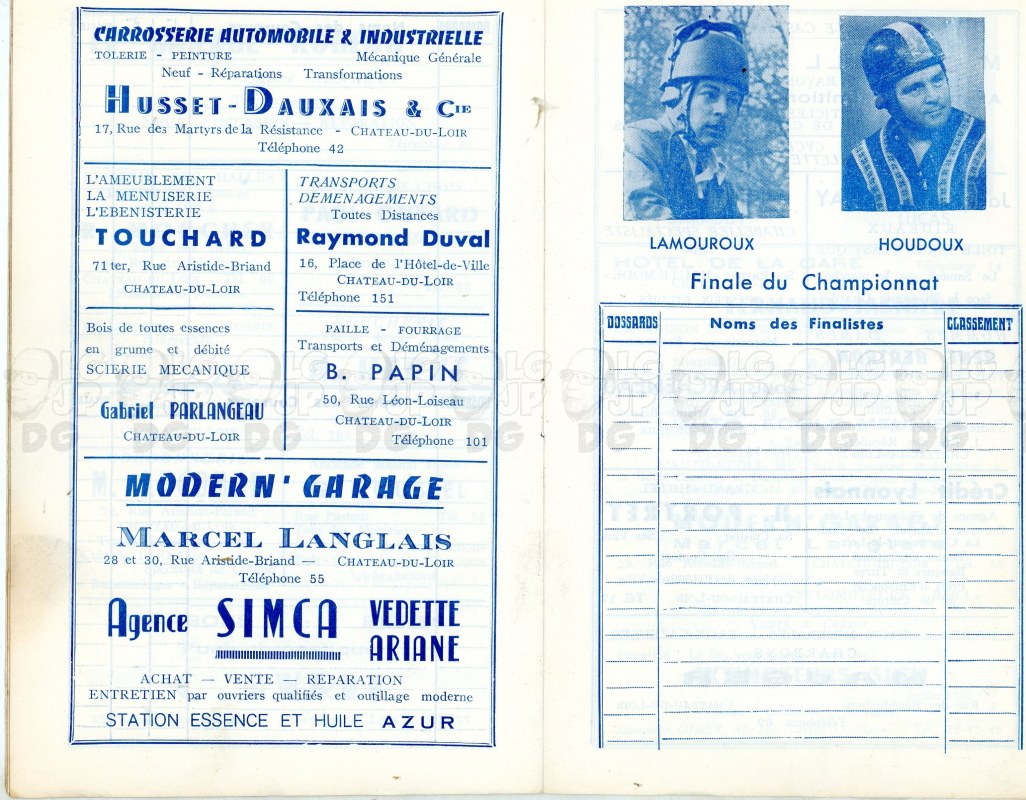 CARROSSERIE AUTOMOBILE & INDUSTRIELLE
TOLERIE - PEINTURE Mécanique Générale
Neuf - Réparations Transformations
HUSSET-DAUXAIS & CIE
17, Rue des Martyrs de la Résistance - CHATEAU-DU-LOIR
Téléphone 42
L'AMEUBLEMENT
LA MENUISERIE
L'EBENISTERIE
TOUCHARD
71 ter, Rue Aristide-Briand
CHATEAU-DU-LOIR
TRANSPORTS
DEMENAGEMENTS
Toutes Distances
Raymond Duval
16, Place de l'Hôtel-de-Ville
CHATEAU-DU-LOIR
Téléphone 151
Bois de toutes essences
en grume et débité
SCIERIE MECANIQUE
Gabriel PARLANGEAU
CHATEAU-DU-LOIR
PAILLE - FOURRAGE
Transports et Déménagements
B. PAPIN
50, Rue Léon-Loiseau
CHATEAU-DU-LOIR
Téléphone 101
MODERN' GARAGE
MARCEL LANGLAIS
28 et 30, Rue Aristide-Briand — CHATEAU-DU-LOIR
Téléphone 55
Agence SIMCA VEDETTE
ARIANE
ACHAT — VENTE — REPARATION
ENTRETIEN par ouvriers qualifiés et outillage moderne
STATION ESSENCE ET HUILE AZUR
LAMOUROUX HOUDOUX
Finale du Championnat
DOSSARDS Noms des Finalistes CLASSEMENT
LG JP DG